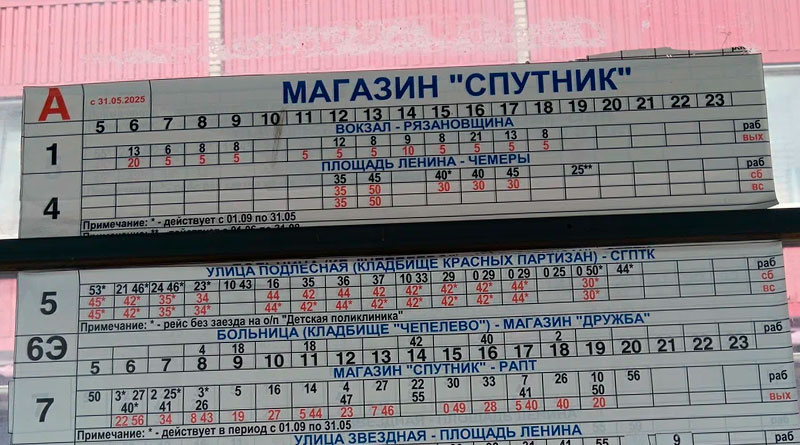 А с 31.05.2025 МАГАЗИН "СПУТНИК"
5 6 7 8 9 10 11 12 13 14 15 16 17 18 19 20 21 22 23
ВОКЗАЛ - РЯЗАНОВЩИНА
1 13 6 8 8 12 8 9 8 21 13 8 раб
20 5 5 5 5 5 5 10 5 5 5 5 вых
ПЛОЩАДЬ ЛЕНИНА - ЧЕМЕРЫ
4 35 45 40* 40 45 25** раб
35 50 30 30 30 сб
35 50 вс
Примечание: * - действует с 01.09 по 31.05
УЛИЦА ПОДЛЕСНАЯ (КЛАДБИЩЕ КРАСНЫХ ПАРТИЗАН) - СГПТК
5 53* 21 46* 24 46* 23* 10 43 16 35 36 34 38 10 33 29 0 29 0 29 0 25 0 50* 44* раб
45* 42* 35* 34 44 42 44 42 42* 42* 42* 44* 30* сб
45* 42* 35* 34 44* 42* 44* 42* 42* 42* 42* 44* 30* вс
Примечание: * - рейс без заезда на о/п "Детская поликлиника"
БОЛЬНИЦА (КЛАДБИЩЕ "ЧЕПЕЛЕВО") - МАГАЗИН "ДРУЖБА"
6Э 4 18 18 42 40 2
5 6 7 8 9 10 11 12 13 14 15 16 17 18 19 20 21 22 23
МАГАЗИН "СПУТНИК" - РАПТ
7 50 3* 27 2 25* 3* 5 16 14 4 27 22 30 33 7 26 10 56 раб
40* 41 26 47 55 41 50
22 56 34 8 43 19 27 5 44 23 7 46 0 49 28 5 40 40 20 вых
Примечание: * - действует в период с 01.09 по 31.05
УЛИЦА ЗВЕЗДНАЯ - ПЛОЩАДЬ ЛЕНИНА